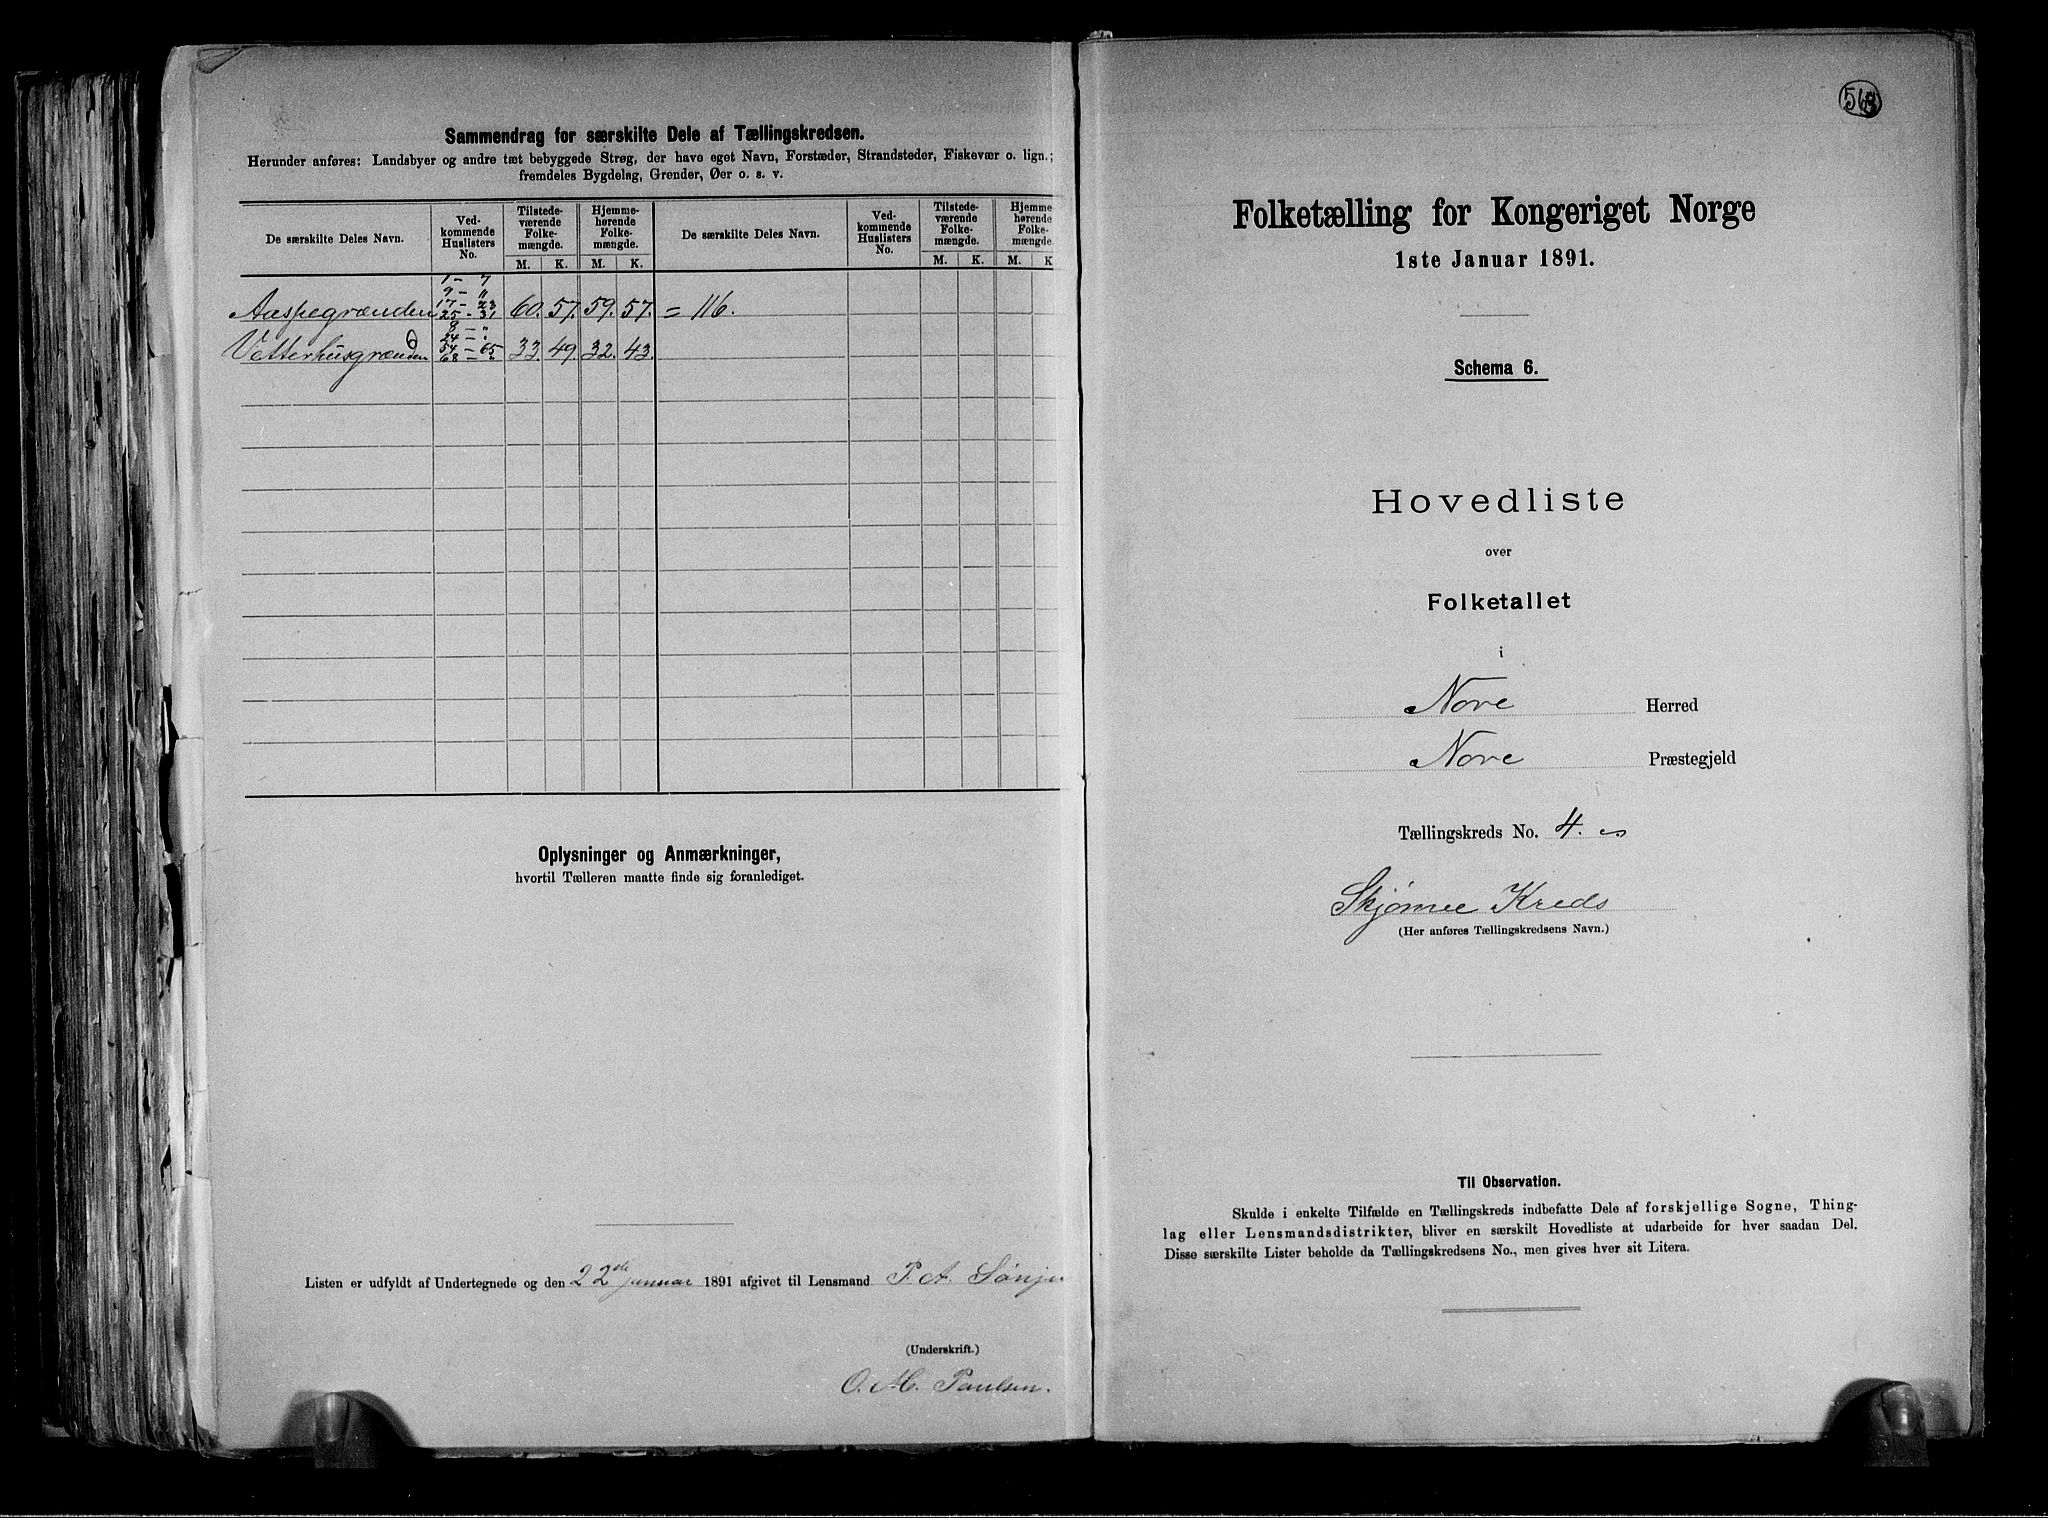 Sammendrag for særskilte Dele af Tællingskredsen.
Herunder anføres: Landsbyer og andre tæt bebyggede Strøg, der have eget Navn, Forstæder, Strandsteder, Fiskevær o. lign.;
fremdeles Bygdelag, Grender, Øer o. s. v.
De særskilte Deles Navn. Ved- kommende Huslisters No. Tilstede- værende Folke- mængde. Hjemme- hørende Folke- mængde. De særskilte Deles Navn. Ved- kommende Huslisters No. Tilstede- værende Folke- mængde. Hjemme- hørende Folke- mængde.
M. K. M. K. M. K. M. K
1 - 7
9 - "
17 - 23
Aaspegrænden 25 - 31 60. 57. 59. 57. = 116.
8 - "
24 - "
54 - 65
Vetterhusgrænden 68 - 33. 49. 32. 43.
Oplysninger og Anmærkninger,
hvortil Tælleren maatte finde sig foranlediget.
Listen er udfyldt af Undertegnede og den 22de januar 1891 afgivet til Lensmand P. A.
(Underskrift.)
O. M. Paulsen.
568
Folketælling for Kongeriget Norge
1ste Januar 1891.
Schema 6.
Hovedliste
over
Folketallet
i
Nore Herred
Nore Præstegjeld
Tællingskreds No. 4.
Skjønne Kreds
(Her anføres Tællingskredsens Navn.)
Til Observation.
Skulde i enkelte Tilfælde en Tællingskreds indbefatte Dele af forskjellige Sogne, Thing-
lag eller Lensmandsdistrikter, bliver en særskilt Hovedliste at udarbeide for hver saadan Del.
Disse særskilte Lister beholde da Tællingskredsens No., men gives hver sit Litera.